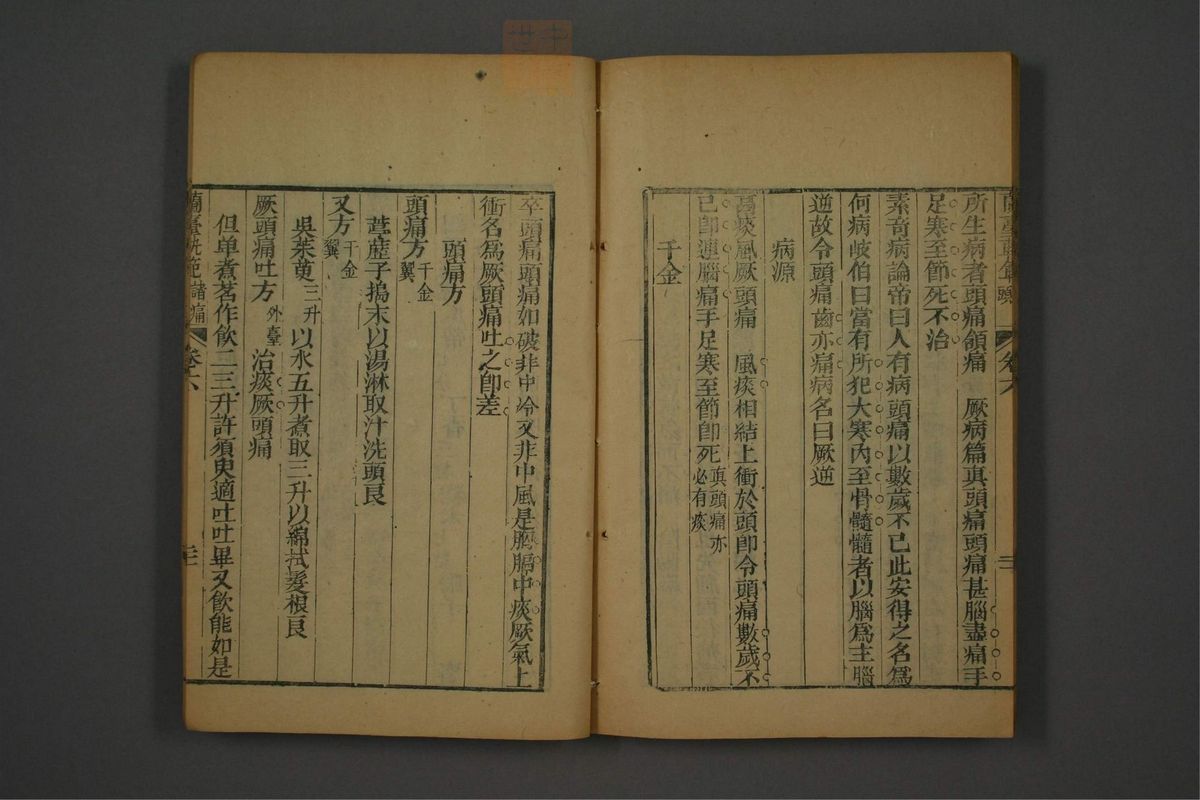 所生病者頭痛頷痛　厥病篇真頭痛頭痛甚腦盡痛手
足寒至節死不治
素奇病論帝曰人有病頭痛以數歲不已此安得之名爲
何病岐伯曰當有所犯大寒內至骨髓髓者以腦爲主腦
逆故令頭痛齒亦痛病名曰厥逆
病源
膈痰風厥頭痛　風痰相結上衝於頭卽令頭痛數歲不
已卽連腦痛手足寒至節卽死真頭痛亦必有痰
千金
卒頭痛頭痛如破非中冷又非中風是胸膈中痰厥氣上
衝名爲厥頭痛吐之卽差
頭痛方
頭痛方千金翼
葶藶子搗末以湯淋取汁洗頭良
又方千金翼
吳茱萸三升以水五升煮取三升以綿拭髮根良
厥頭痛吐方外臺　治痰厥頭痛
但单煮茗作飲二三升許須臾適吐吐畢又飲能如是
蘭臺軌範　卷六